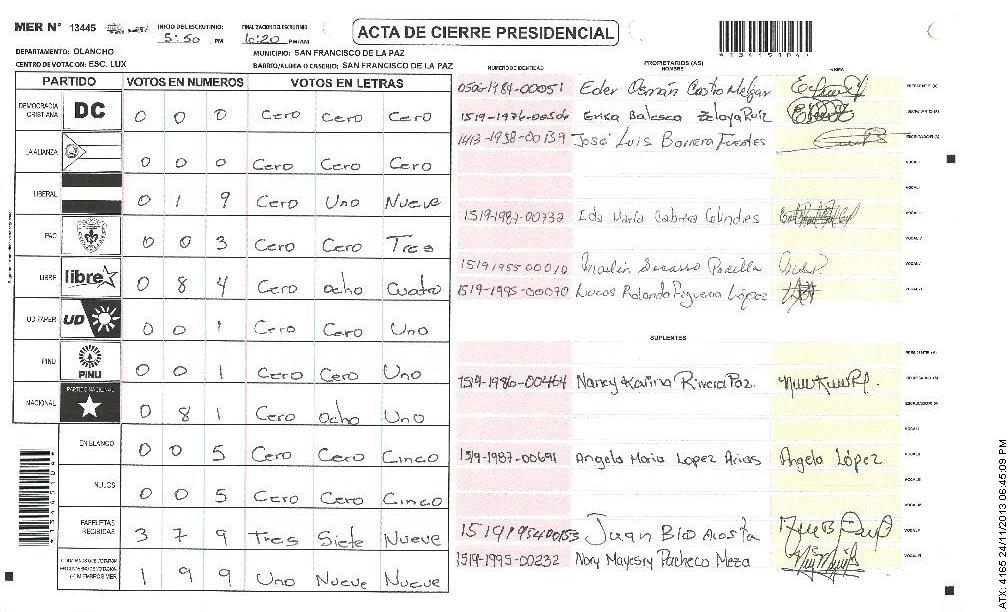 MER N° 13445
INICIO DEL ESCRUTINIO: 5:50 PM
FINALIZACION DEL ESCRUTINIO: 6:20 PM/AM
ACTA DE CIERRE PRESIDENCIAL
DEPARTAMENTO: OLANCHO
MUNICIPIO: SAN FRANCISCO DE LA PAZ
CENTRO DE VOTACION: ESC. LUX
BARRIO/ALDEA O CASERIO: SAN FRANCISCO DE LA PAZ
PARTIDO VOTOS EN NUMEROS VOTOS EN LETRAS
DEMOCRACIA CRISTIANA DC 0 0 0 Cero Cero Cero
LA ALIANZA 0 0 0 Cero Cero Cero
LIBERAL 0 1 9 Cero Uno Nueve
PAC 0 0 3 Cero Cero Tres
LIBRE libre 0 8 4 Cero ocho Cuatro
UD FAPER UD 0 0 1 Cero Cero Uno
PINU PINU 0 0 1 Cero Cero Uno
NACIONAL PARTIDO NACIONAL 0 8 1 Cero ocho Uno
EN BLANCO 0 0 5 Cero Cero Cinco
NULOS 0 0 5 Cero Cero Cinco
PAPELETAS RECIBIDAS 3 7 9 Tres Siete Nueve
1 9 9 Uno Nueve Nueve
NUMERO DE IDENTIDAD
PROPIETARIOS (AS)
NOMBRE
FIRMA
0506-1984-00051 Eder Osmán Castro Melgar PRESIDENTE (A)
1519-1976-00506 Erika Zelaya Ruiz SECRETARIO (A)
1413-1958-00139 José Luis Barrera Fuentes ESCRUTADOR (A)
VOCAL I
VOCAL II
1519-1987-00732 Eda María Cabrera
1519 1955 00010
1519-1995-00070 Lucas Rolando Figueroa López
SUPLENTES
PRESIDENTE (A)
1519-1986-00464 Nancy Karina Rivera Paz. SECRETARIO (A)
ESCRUTADOR (A)
VOCAL I
1519-1987-00691 Angela Maria Lopez Arias Angela López VOCAL II
VOCAL III
VOCAL IV
Juan Blas Acosta VOCAL V
1519-1995-00232 Nory Mayesry Pacheco Meza VOCAL VI
*13445104*
*13445104*
ATX: 4165 24/11/2013 06:45:09 PM